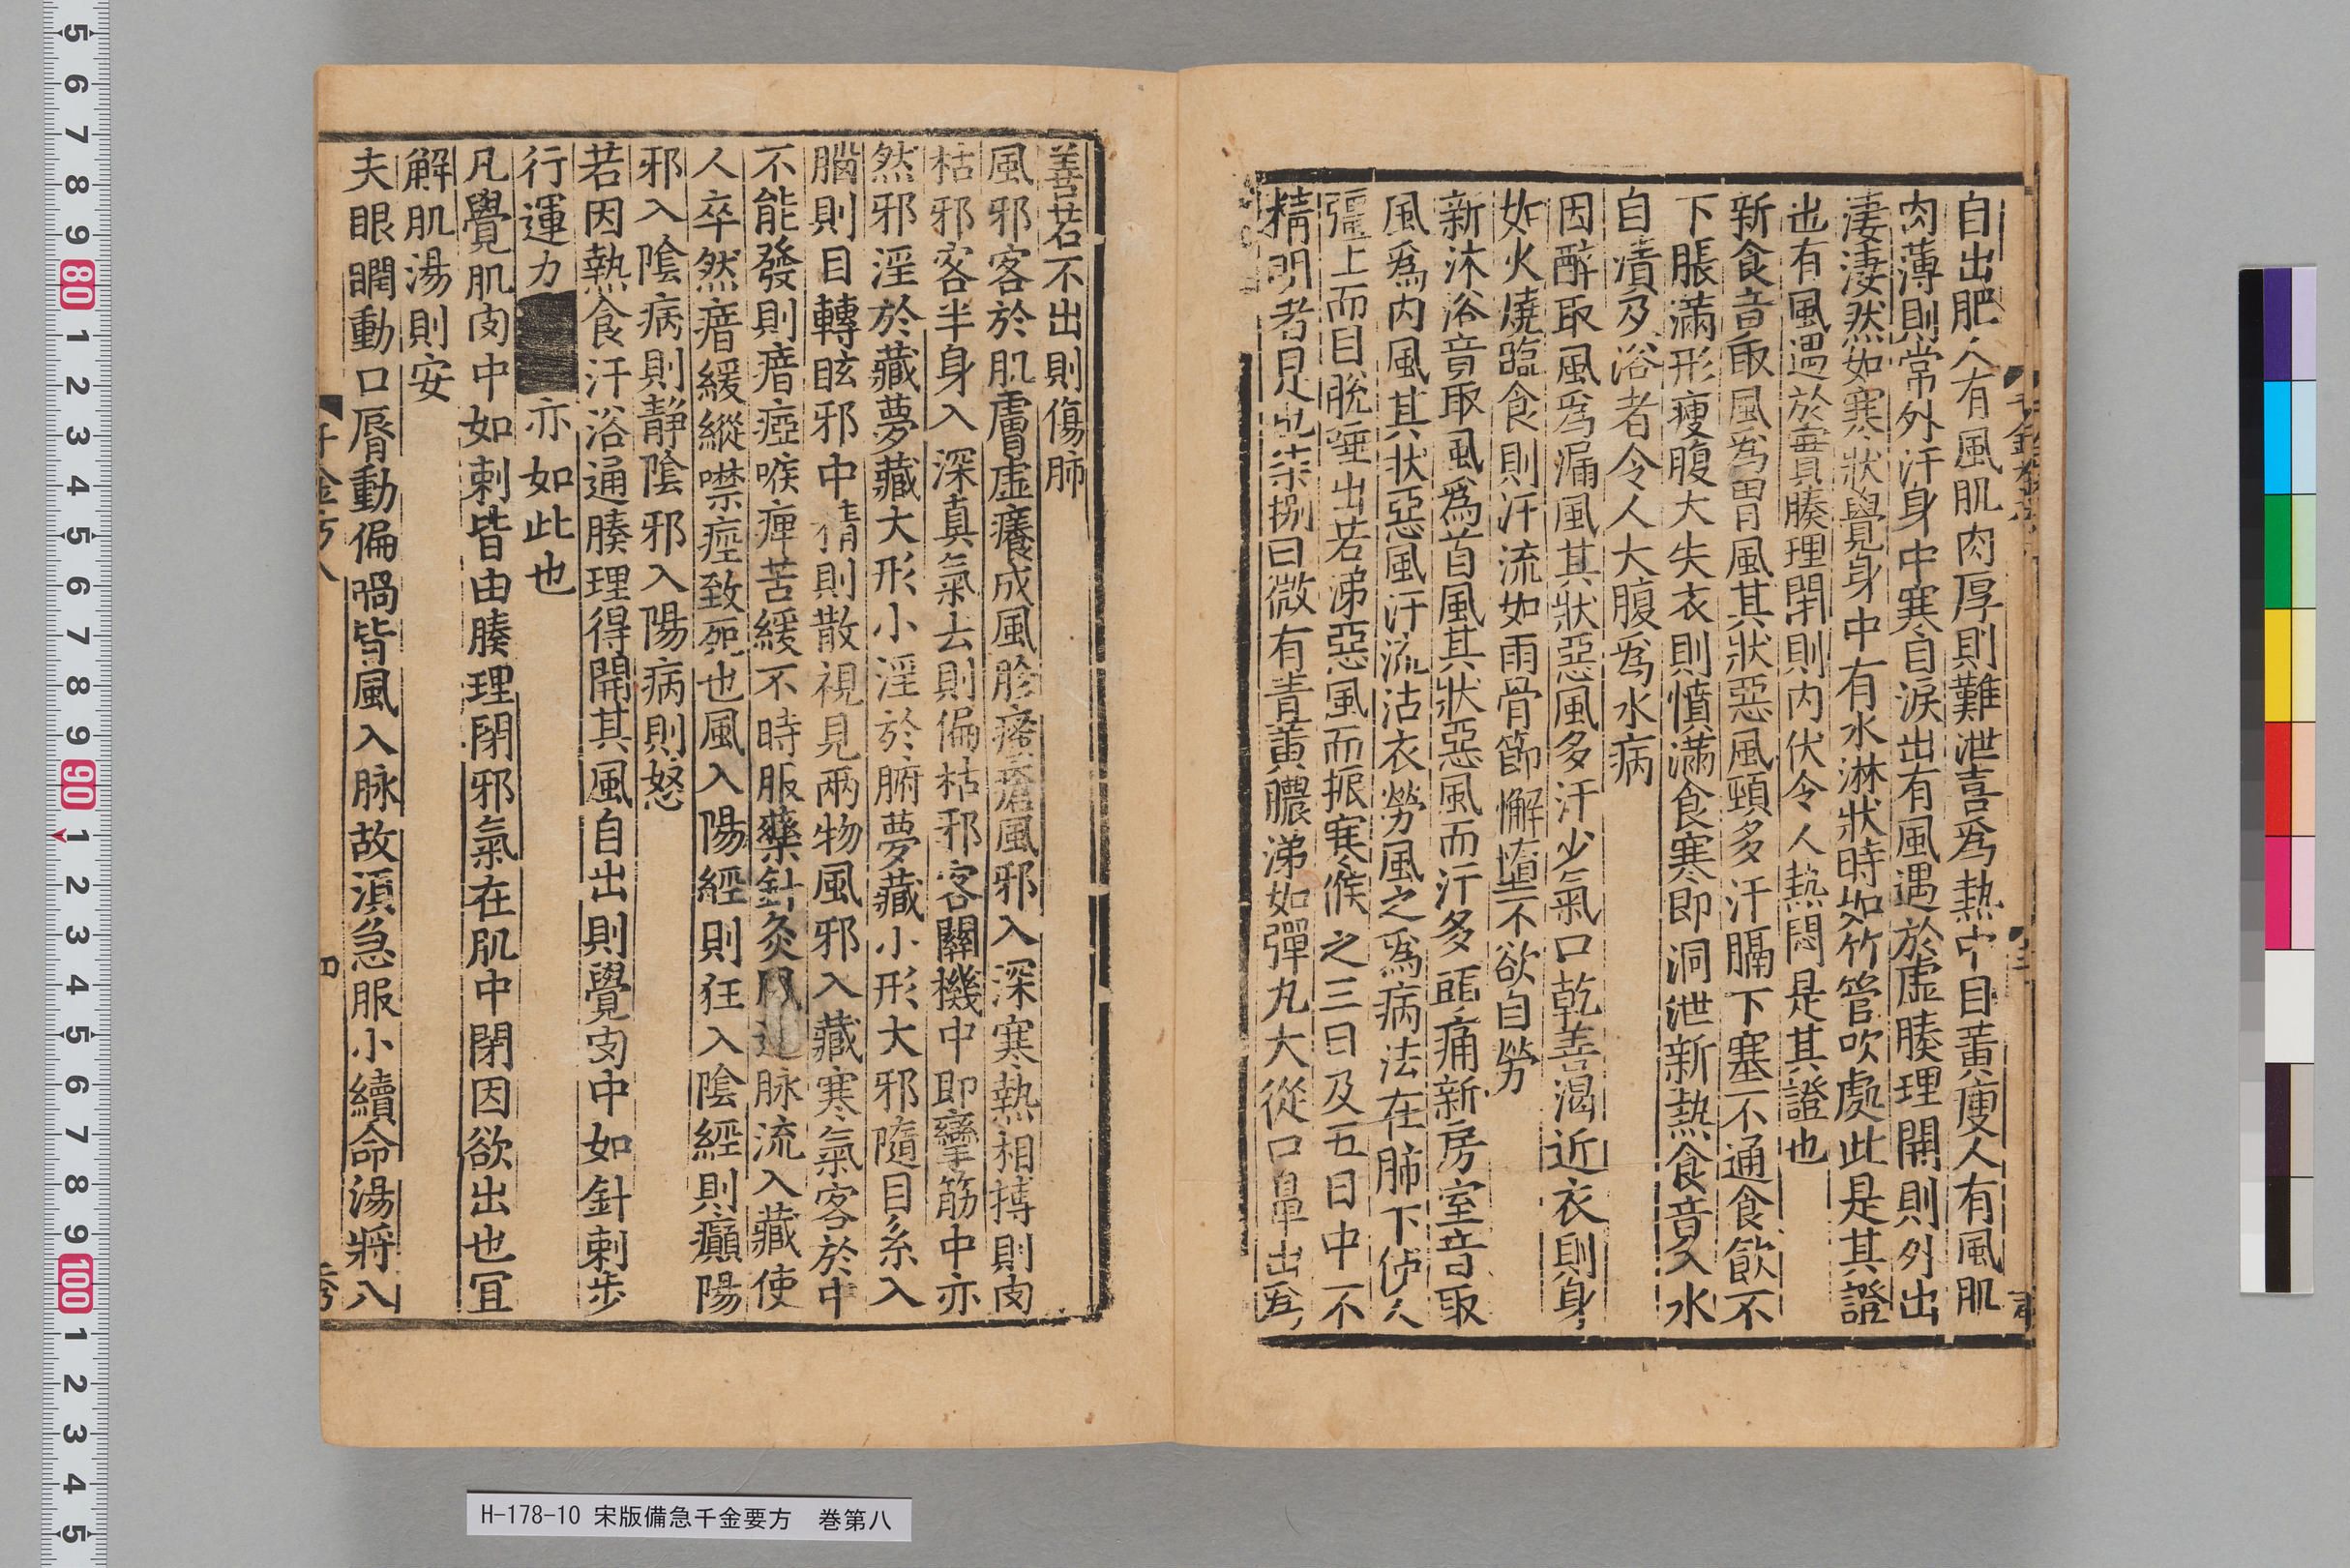 自出肥人有風肌肉厚則難泄喜爲熱中目黃瘦人有風肌
肉薄則常外汗身中寒自淚出有風遇於虛腠理開則外出
淒淒然如寒狀覺身中有水淋狀時如竹管吹處此是其證
也有風遇於實腠理閉則内伏令人熱悶是其證也
新食竟取風爲胃風其狀惡風頸多汗膈下塞不通食飲不
下脹滿形瘦腹大失衣則憤滿食寒即洞泄新熱食竟入水
自漬及浴者令人大腹爲水病
因醉取風爲漏風其狀惡風多汗少氣口乾善渴近衣則身
如火燒臨食則汗流如雨骨節懈墮不欲自勞
新沐浴竟取風爲首風其狀惡風而汗多頭痛新房室竟取
風爲内風其狀惡風汗流沾衣勞風之爲病法在肺下使人
彊上而目脫唾出若涕惡風而振寒候之三日及五日中不
精明者是也柒捌日微有青黃膿涕如彈丸大從口鼻出爲
善若不出則傷肺
風邪客於肌膚虛癢成風胗瘙瘡風邪入深寒熱相搏則肉
枯邪客半身入深真氣去則偏枯邪客關機中即攣筋中亦
然邪淫於藏夢藏大形小淫於腑夢藏小形大邪隨目系入
腦則目轉眩邪中精則散視見兩物風邪入藏寒氣客於中
不能發則瘖瘂喉痹苦緩不時服藥針灸風逐脉流入藏使
人卒然瘖緩縱噤痙致死也風入陽經則狂入陰經則癲陽
邪入陰病則靜陰邪入陽病則怒
若因熱食汗浴通腠理得開其風自出則覺肉中如針刺步
行運力亦如此也
凡覺肌肉中如刺皆由腠理閉邪氣在肌中閉因欲出也宜
解肌湯則安
夫眼瞤動口脣動偏喎皆風入脉故湏急服小續命湯將八
四
H-178-10 宋版備急千金要方　巻第八
5 6 7 8 9 80 1 2 3 4 5 6 7 8 9 90 1 2 3 4 5 6 7 8 9 100 1 2 3 4 5